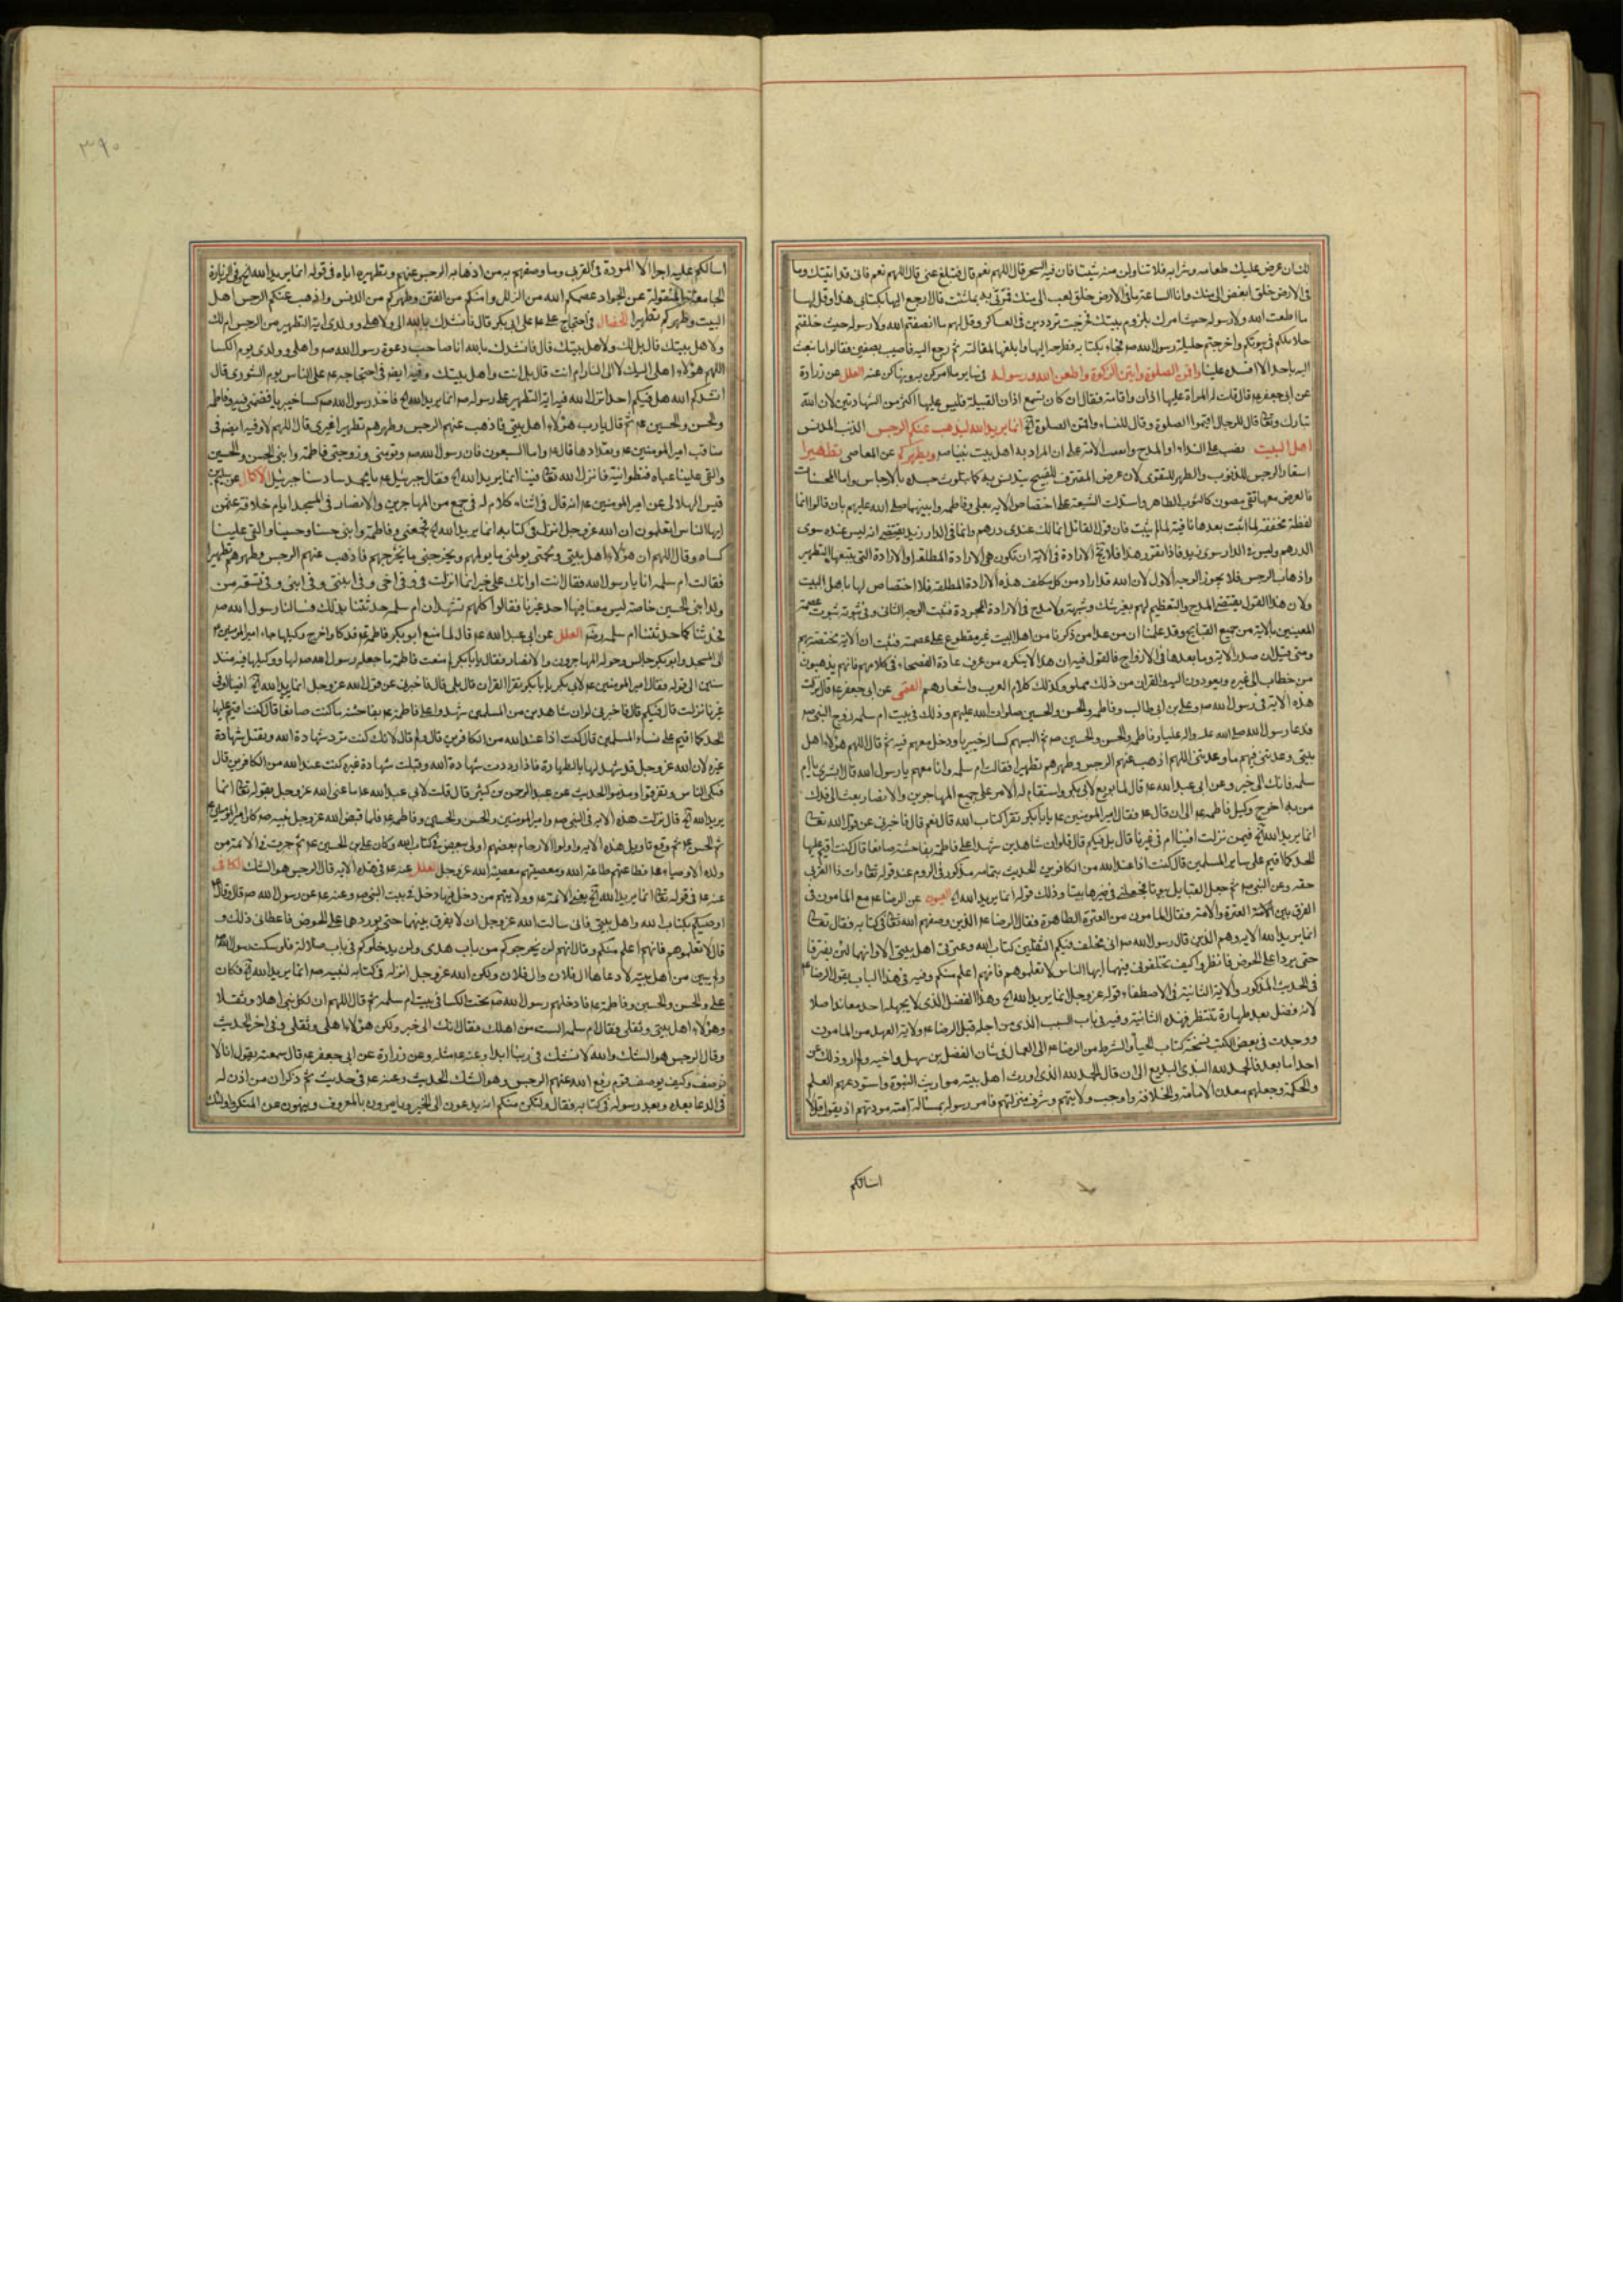 لك ان عرض عليك طعامه وشرابه فلا تناولن منه شيئا فان فيه السحر قال اللهم نعم قال فتبلغ عنى قال اللهم نعم فانى قد اتيتك وما
فى الارض خلق ابغض الى منك وانا الساعة ما فى الارض خلق احب الى منك فمرنى به بما شئت قال ارجع اليها بكتابى هذا وقل لها
ما اطعت الله ولا رسوله حيث امرك بلزوم بيتك فخرجت ترددين فى العساكر وقل لهم ما انصفتم الله ولا رسوله حيث خلفتم
حلائلكم فى بيوتكم واخرجتم حليلة رسول الله صم فجاء بكتابه فطرحه اليها وابلغها المقالة ثم رجع اليه فاصيب بصفين فقالوا ما نبعث
اليه باحد الا افسده علينا واقمن الصلوة واتين الزكوة واطعن الله ورسوله فى سائر ما امركن به ونهاكن عنه العلل عن زرارة
عن ابى جعفر عم قال قلت له المراة عليها اذان واقامة فقال ان كان تسمع اذان القبيلة فليس عليها اكثر من الشهادتين لان الله
تبارك وتعا قال للرجال اقيموا الصلوة وقال للنساء واقمن الصلوة الخ انما يريد الله ليذهب عنكم الرجس الذنب المدنس
اهل البيت نصب على النداء او المدح ان المراد به اهل بيت نبينا صم ويطهركم عن المعاصى تطهيرا
استعار الرجس للذنوب والطهر للتقوى لان عرض المقترف للقبيح يتدنس به كما يتلوث جسده بالارجاس واما المحسنات
فالعرض معها نقى مصون كالثوب الطاهر واستدلت الشيعة على اختصاص الاية بعلى وفاطمه وابنيهما صلى الله عليهم بان قالوا انما
لفظة محققة لما اثبت بعدها نافية لما لم يثبت فان قول القائل انما لك عندى درهم وانما فى الدار زيد يقتضى انه ليس عنده سوى
الدرهم وليس فى الدار سوى زيد فاذا تقرر هذا فلا تخ الارادة فى الاية ان تكون هى الارادة المطلقة او الارادة التى يتبعها التطهير
واذهاب الرجس فلا يجوز الوجه الاول لان الله قد اراد من كل مكلف هذه الارادة المطلقة فلا اختصاص لها باهل البيت
ولان هذا القول يقتضى المدح والتعظيم لهم بغير شك وشبهة ولا مدح فى الارادة المجردة فثبت الوجه الثانى وفى ثبوته ثبوت عصمة
المعينين بالاية من جميع القبايح وقد علمنا ان من عدا من ذكرنا من اهل البيت غير مقطوع على عصمته فثبت ان الاية مختصة بهم
ومتى قيل ان صدر الاية وما بعدها فى الازواج فالقول فيه ان هذا لا ينكره من عرف عادة الفصحاء فى كلامهم فانهم يذهبون
من خطاب الى غيره ويعودون اليه والقران من ذلك مملو وكذلك كلام العرب واشعارهم القمى عن ابى جعفر عم قال نزلت
هذه الاية فى رسول الله صم وعلى بن ابى طالب وفاطمه والحسن والحسين صلوات الله عليهم وذلك فى بيت ام سلمه زوج النبى صم
فدعا رسول الله صلى الله عليه واله عليا وفاطمه والحسن والحسين صم ثم البسهم كساء له خيبريا ودخل معهم فيه ثم قال اللهم هؤلاء اهل
بيتى وعدتنى فيهم ما وعدتنى اللهم اذهب عنهم الرجس وطهرهم تطهيرا فقالت ام سلمه وانا معهم يا رسول الله قال ابشرى يا ام
سلمه فانك الى خير وعن ابى عبد الله عم قال لما بويع لابى بكر واستقام له الامر على جميع المهاجرين والانصار بعث الى فدك
من اخرج وكيل فاطمه عم الى ان قال عم فقال امير المومنين عم يا بابكر تقرا كتاب الله قال نعم قال فاخبرنى عن قول الله تعا
انما يريد الله الخ فيمن نزلت افينا ام فى غيرنا قال بل فيكم قال فلو ان شاهدين شهدا على فاطمة بفاحشة ما كنت صانعا قال كنت اقيم عليها
الحد كما اقيم على سائر المسلمين قال كنت اذا عند الله من الكافرين الحديث بتمامه مذكور فى الروم عند قوله تعا وات ذا القربى
حقه وعن النبى صم ثم جعل القبايل بيوتا فجعلنى فى خيرها بيتا وذلك قوله انما يريد الله الخ العيون عن الرضا عم مع المامون فى
الفرق بين العترة والامة فقال المامون من العترة الطاهرة فقال الرضا عم الذين وصفهم الله تعا فى كتابه فقال تعا
انما يريد الله الاية وهم الذين قال رسول الله صم انى مخلف فيكم الثقلين كتاب الله وعترتى اهل بيتى الا وانهما لن يفترقا
حتى يردا على الحوض فانظروا كيف تخلفونى فيهما ايها الناس لا تعلموهم فانهم اعلم منكم وفيه فى هذا الباب يقول الرضا عم
فى الحديث المذكور والاية الثانية فى الاصطفاء قوله عز وجل انما يريد الله الخ وهذا الفضل الذى لا يجهله احد معاند اصلا
لانه فضل بعد طهارة تنتظر فهذه الثانية وفيه فى باب السبب الذى من اجله قبل الرضا عم ولاية العهد من المامون
ووجدت فى بعض الكتب نسخة كتاب الحباء والشرط من الرضا عم الى العمال فى شان الفضل بن سهل واخيه ولم ارو ذلك عن
احد اما بعد فالحمد لله البدى البديع الى ان قال الحمد لله الذى اورث اهل بيته مواريث النبوة واستودعهم العلم
والحكمة وجعلهم معدن الامامة والخلافة واوجب ولايتهم وشرف منزلتهم فامر رسوله بمسالة امته مودتهم اذ يقول قل لا
اسالكم
٣٩٠
اسالكم عليه اجرا الا المودة فى القربى وما وصفهم به من اذهابه الرجس عنهم وتطهيره اياه فى قوله انما يريد الله الخ وفى الزيارة
الجامعة المنقولة عن الجواد عصمكم الله من الزلل وامنكم من الفتن وطهركم من الدنس واذهب عنكم الرجس اهل
البيت وطهركم تطهيرا الخصال فى احتجاج على عم على ابى بكر قال فانشدك بالله الى ولاهلى وولدى اية التطهير من الرجس ام لك
ولاهل بيتك قال بل لك ولاهل بيتك قال فانشدك بالله انا صاحب دعوة رسول الله صم واهلى وولدى يوم الكسا
اللهم هؤلاء اهلى اليك لا الى النار ام انت قال بل انت واهل بيتك وفيه ايضه فى احتجاجه عم على الناس يوم الشورى قال
انشدكم الله هل فيكم احد انزل الله فيه اية التطهير على رسوله صم انما يريد الله الخ فاخذ رسول الله صم كساء خيبريا فضمنى فيه وفاطمه
والحسن والحسين عم ثم قال يا رب هؤلاء اهل بيتى فاذهب عنهم الرجس وطهرهم تطهيرا غيرى قال اللهم لا وفيه ايضه فى
مناقب امير المومنين عم وتعدادها قال عم واما السبعون فان رسول الله صم ونومنى وزوجتى فاطمة وابنى الحسن والحسين
والقى علينا عباه قطوانية فانزل الله تعا فينا انما يريد الله الخ فقال جبرئيل عم يا محمد سادسنا جبرئيل الاكمال عن سليم بن
قيس الهلالى عن امير المومنين عم انه قال فى اثناء كلام له فى جمع من المهاجرين والانصار فى المسجد ايام خلافة عثمن
ايها الناس اتعلمون ان الله عز وجل انزل فى كتابه انما يريد الله الخ فجمعنى وفاطمة وابنى حسنا وحسينا والقى علينا
كساء وقال اللهم ان هؤلاء اهل بيتى ولحمتى يولمنى ما يولمهم ويحرجنى ما يحرجهم فاذهب عنهم الرجس وطهرهم تطهيرا
فقالت ام سلمه انا يا رسول الله فقال انت او انك على خير انما انزلت فى وفى اخى وفى ابنتى وفى ابنى وفى تسعة من
ولد ابنى الحسين خاصة ليس معنا فيها احد غيرنا فقالوا كلهم نشهد ان ام سلمه حدثتنا بذلك فسالنا رسول الله صم
فحدثنا كما حدثتنا ام سلمه رضه العلل عن ابى عبد الله عم قال لما منع ابوبكر فاطمة عم فدكا واخرج وكيلها جاء امير المومنين عم
الى المسجد وابوبكر جالس وحوله المهاجرون والانصار فقال يا بابكر لم منعت فاطمة ما جعله رسول الله صم لها ووكيلها فيه منذ
سنين الى قوله فقال امير المومنين عم لابى بكر يا بابكر تقرا القران قال بلى قال فاخبرنى عن قول الله عز وجل انما يريد الله الخ افينا او فى
غيرنا نزلت قال فيكم قال فاخبرنى لو ان شاهدين من المسلمين شهدوا على فاطمة عم بفاحشة ما كنت صانعا قال كنت اقيم عليها
الحد كما اقيم على نساء المسلمين قال كنت اذا عند الله من الكافرين قال ولم قال لانك كنت ترد شهادة الله وتقبل شهادة
غيره لان الله عز وجل قد شهد لها بالطهارة فاذا رددت شهادة الله وقبلت شهادة غيره كنت عند الله من الكافرين قال
فبكى الناس وتفرقوا ودمدموا الحديث عن عبد الرحمن بن كثير قال قلت لابى عبد الله عم ما عنى الله عز وجل بقوله تعا انما
يريد الله الخ قال نزلت هذه الاية فى النبى صم وامير المومنين والحسن والحسين وفاطمه عم فلما قبض الله عز وجل نبيه صم كان امير المومنين
ثم الحسن عم ثم وقع تاويل هذه الاية واولوا الارحام بعضهم اولى ببعض فى كتاب الله وكان على بن الحسين عم ثم جرت فى الائمة من
ولده الاوصياء عم فطاعتهم طاعة الله ومعصيتهم معصية الله عز وجل العلل عنه عم فى هذه الاية قال الرجس هو الشك الكافى
عنه عم فى قوله تعا انما يريد الله الخ يعنى الائمة عم وولايتهم من دخل فيها دخل فى بيت النبى صم وعنه عم عن رسول الله صم قال وقال
اوصيكم بكتاب الله واهل بيتى فانى سالت الله عز وجل ان لا يفرق بينهما حتى يوردهما على الحوض فاعطانى ذلك و
قال لا تعلموهم فانهم اعلم منكم وقال انهم لن يخرجوكم من باب هدى ولن يدخلوكم فى باب ضلالة فلو سكت رسول الله صم
ولم يبين من اهل بيته لادعاها ال فلان وال فلان ولكن الله عز وجل انزله فى كتابه لنبيه صم انما يريد الله الخ فكان
على والحسن والحسين وفاطمة عم فادخلهم رسول الله صم تحت الكسا فى بيت ام سلمه ثم قال اللهم ان لكل نبى اهلا وثقلا
وهؤلاء اهل بيتى وثقلى فقال ام سلمه الست من اهلك فقال انك الى خير ولكن هؤلاء اهلى وثقلى وفى اخر الحديث
وقال الرجس هو الشك والله لا نشك فى ربنا ابدا وعنه عم مثله وعن زرارة عن ابى جعفر عم قال سمعته يقول انا لا
نوصف وكيف يوصف قوم رفع الله عنهم الرجس وهو الشك الحديث وعنه عم فى حديث ثم ذكر ان من اذن له
فى الدعا بعده وبعد رسوله فى كتابه فقال ولتكن منكم امة يدعون الى الخير ويامرون بالمعروف وينهون عن المنكر واولئك